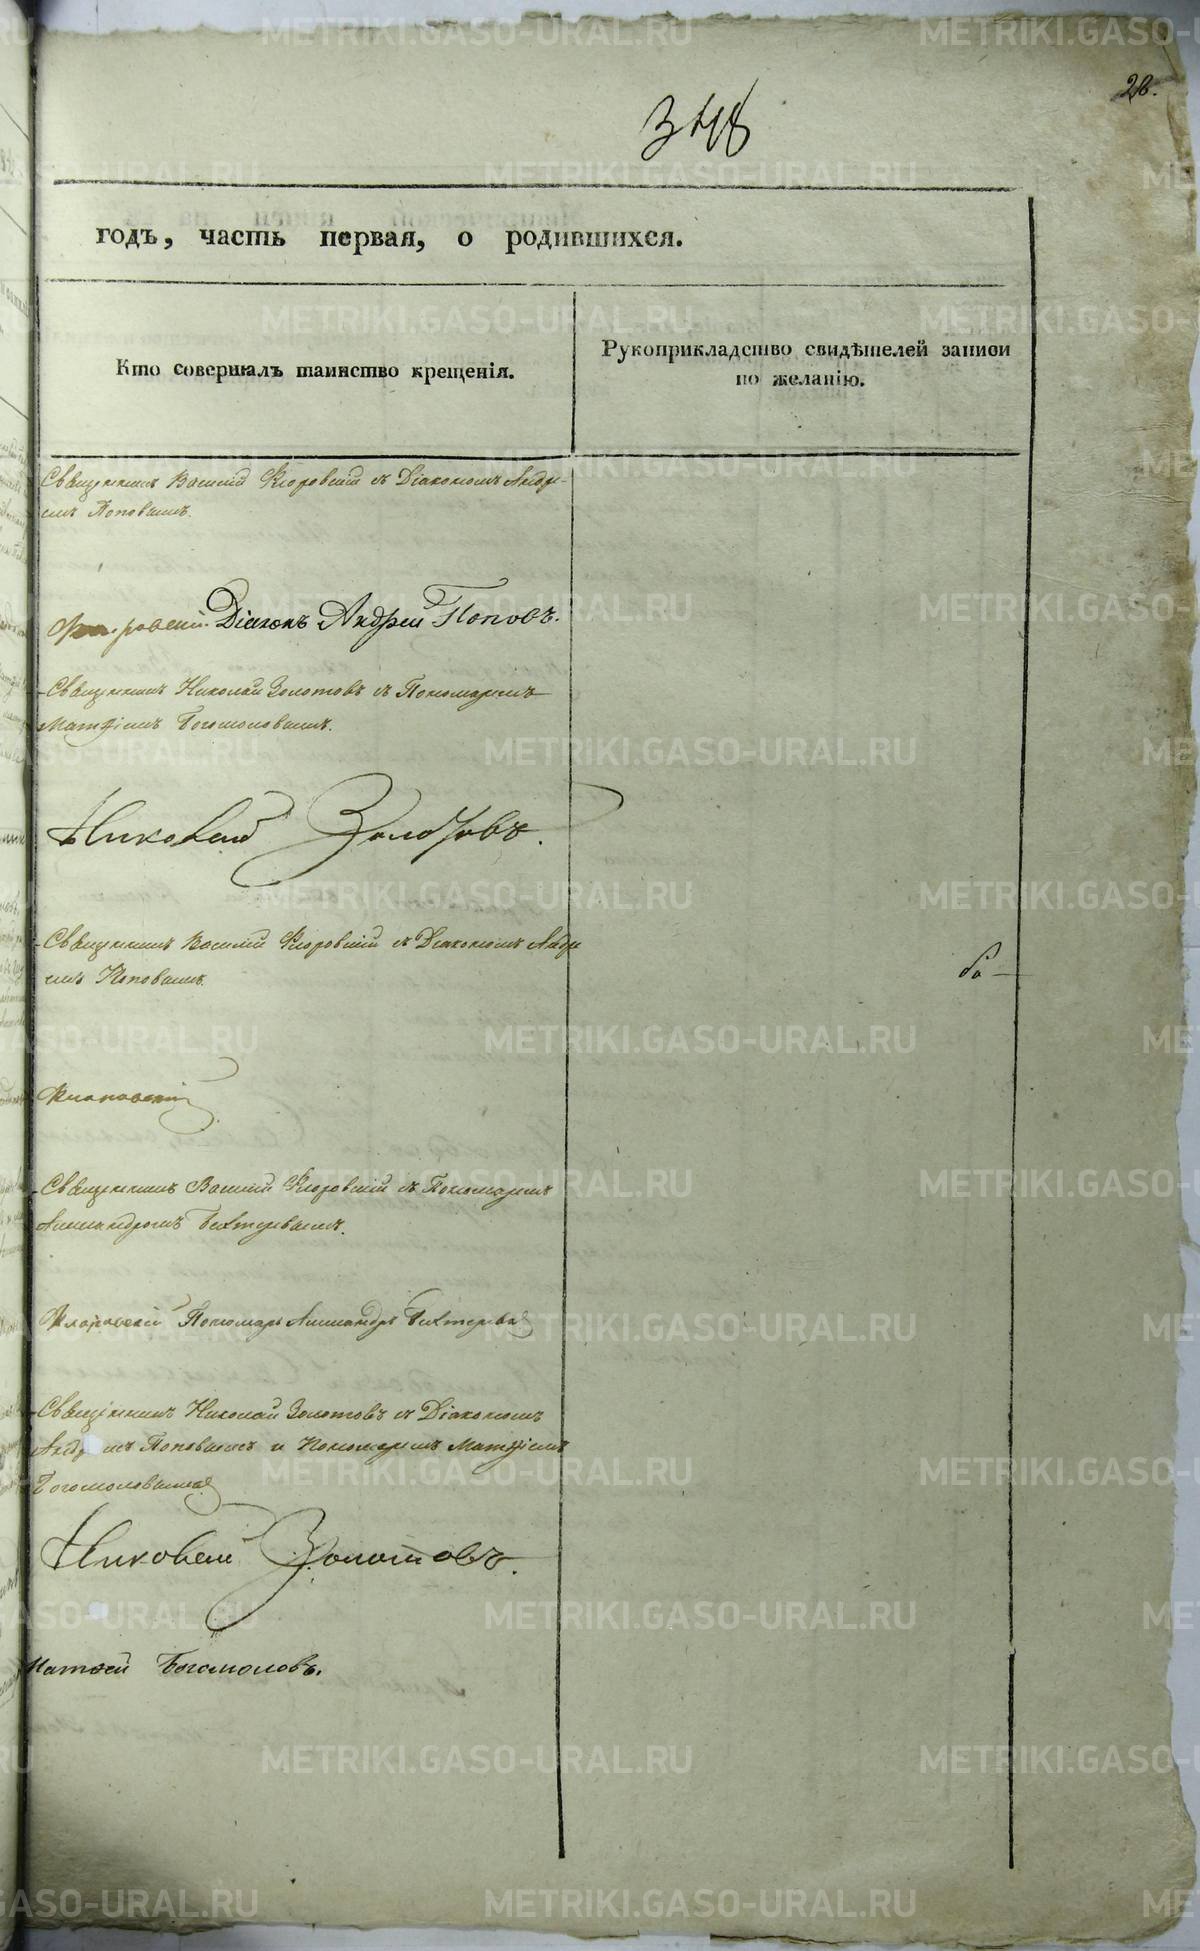 28.
348
годъ, часть первая, о родившихся.
Кто совершалъ таинство крещенія.
Рукоприкладство свидѣтелей записи
по желанію.
Священникъ Василій Флоровскій съ Діакономъ Андре-
емъ Поповымъ.
Діаконъ Андрей Поповъ.
Священникъ Николай Золотовъ съ Пономаремъ
Матфіемъ Богомоловымъ.
Николай Золотовъ.
Священникъ Василій Флоровскій съ Діакономъ Андре
емъ Поповымъ.
Флоровскій
Священникъ Василій Флоровскій съ Пономаремъ
Александромъ Бехтеревымъ.
Флоровскій Пономарь Александръ Бехтеревъ
Священникъ Николай Золотовъ съ Діакономъ
Андреемъ Поповымъ и Пономаремъ Матфіемъ
Богомоловымъ
Николай Золотовъ.
Матѳей Богомоловъ.
METRIKI.GASO-URAL.RU